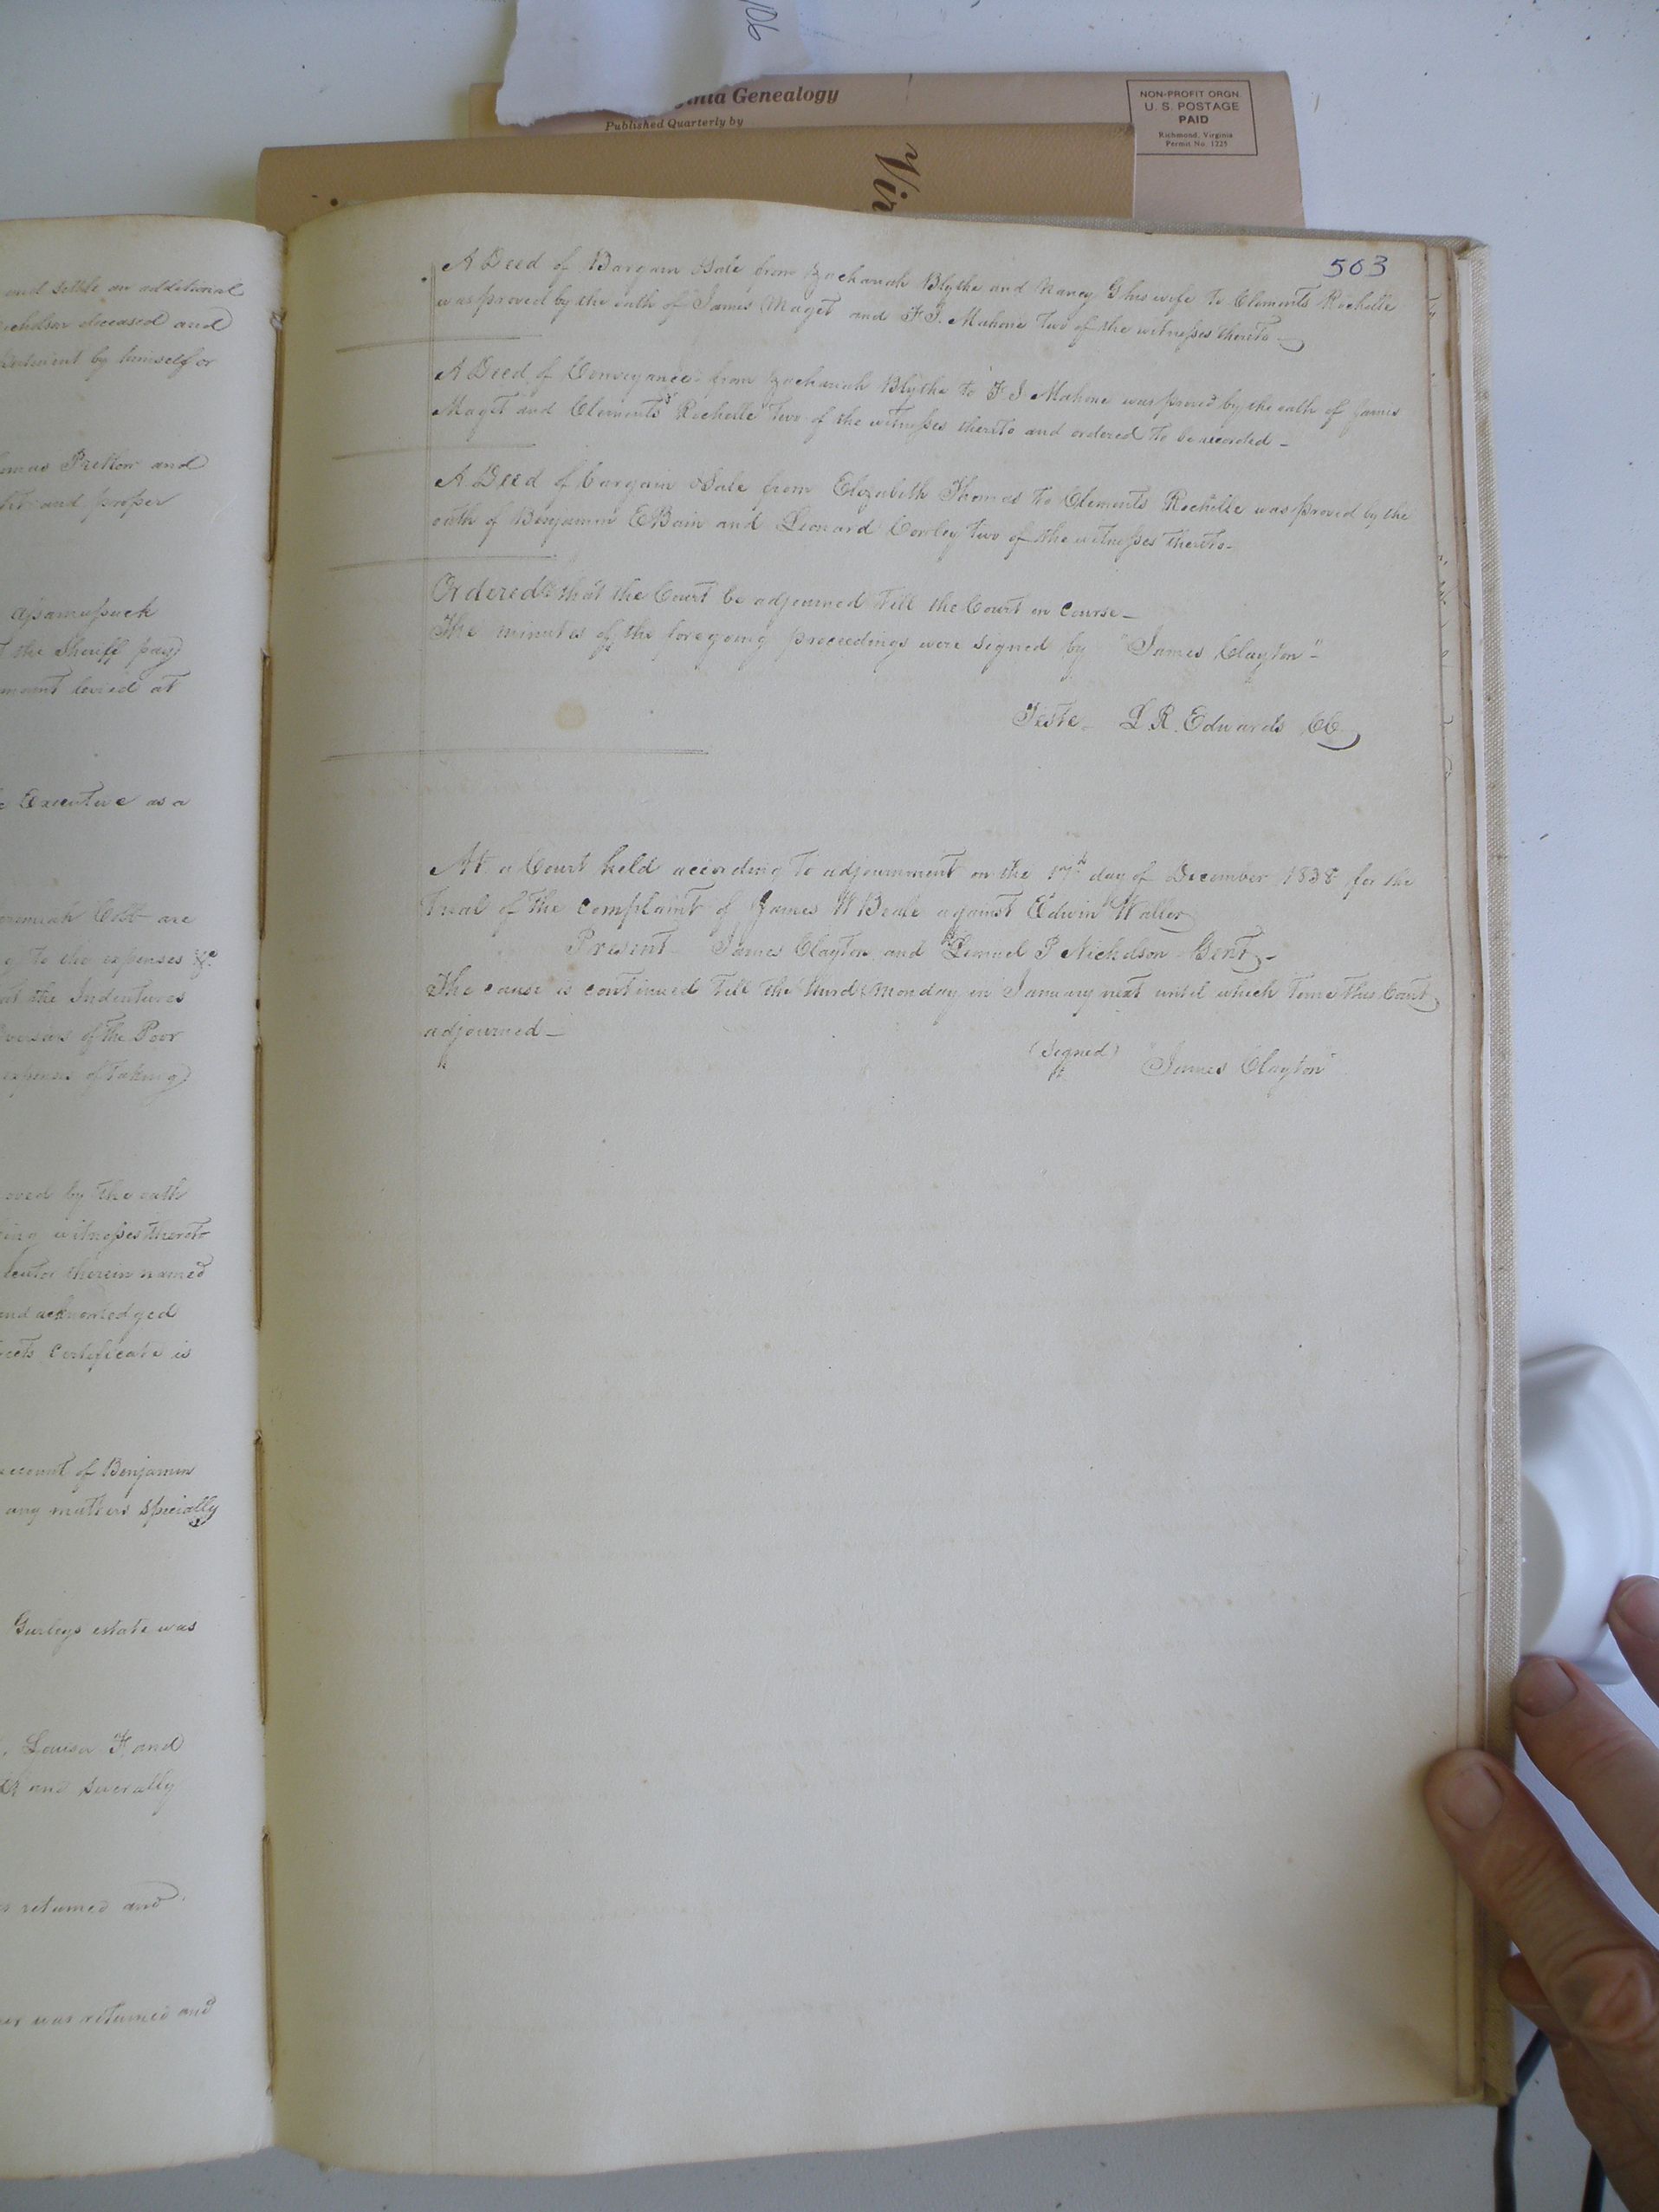 106
Virginia Genealogy
Published Quarterly by
NON-PROFIT ORGN.
U. S. POSTAGE
PAID
Richmond, Virginia
Permit No. 1225
Vir
and settle an additional
deceased and
by himself or
Pretlow and
and proper
the Sheriff pay
levied at
Executive as a
are
to the expenses &c
the Indentures
of the Poor
expenses of taking
by the oath
witnesses thereto
therein named
and acknowledged
certificate is
account of Benjamin
any matters specially
Gurleys estate was
Louisa F. and
and severally
returned and
was returned and
503
A Deed of Bargain & Sale from Zachariah Blythe and Nancy G his wife to Clements Rochelle
was proved by the oath of James Maget and F. J. Mahone two of the witnesses thereto
A Deed of Conveyance from Zachariah Blythe to F J Mahone was proved by the oath of James
Maget and Clements Rochelle two of the witnesses thereto and ordered to be recorded
A Deed of bargain & Sale from Elizabeth Thomas to Clements Rochelle was proved by the
oath of Benjamin E Bain and Leonard Cowley two of the witnesses thereto
Ordered that the Court be adjourned till the Court in Course
The minutes of the foregoing proceedings were signed by "James Clayton"
Teste L R. Edwards CC
At a Court held according to adjournment on the 17th day of December 1838 for the
trial of the complaint of James W Beale against Edwin Waller
Present James Clayton and Lemuel P Nicholson Gent
The cause is continued till the third Monday in January next until which time this Court
adjourned
(Signed) "James Clayton"